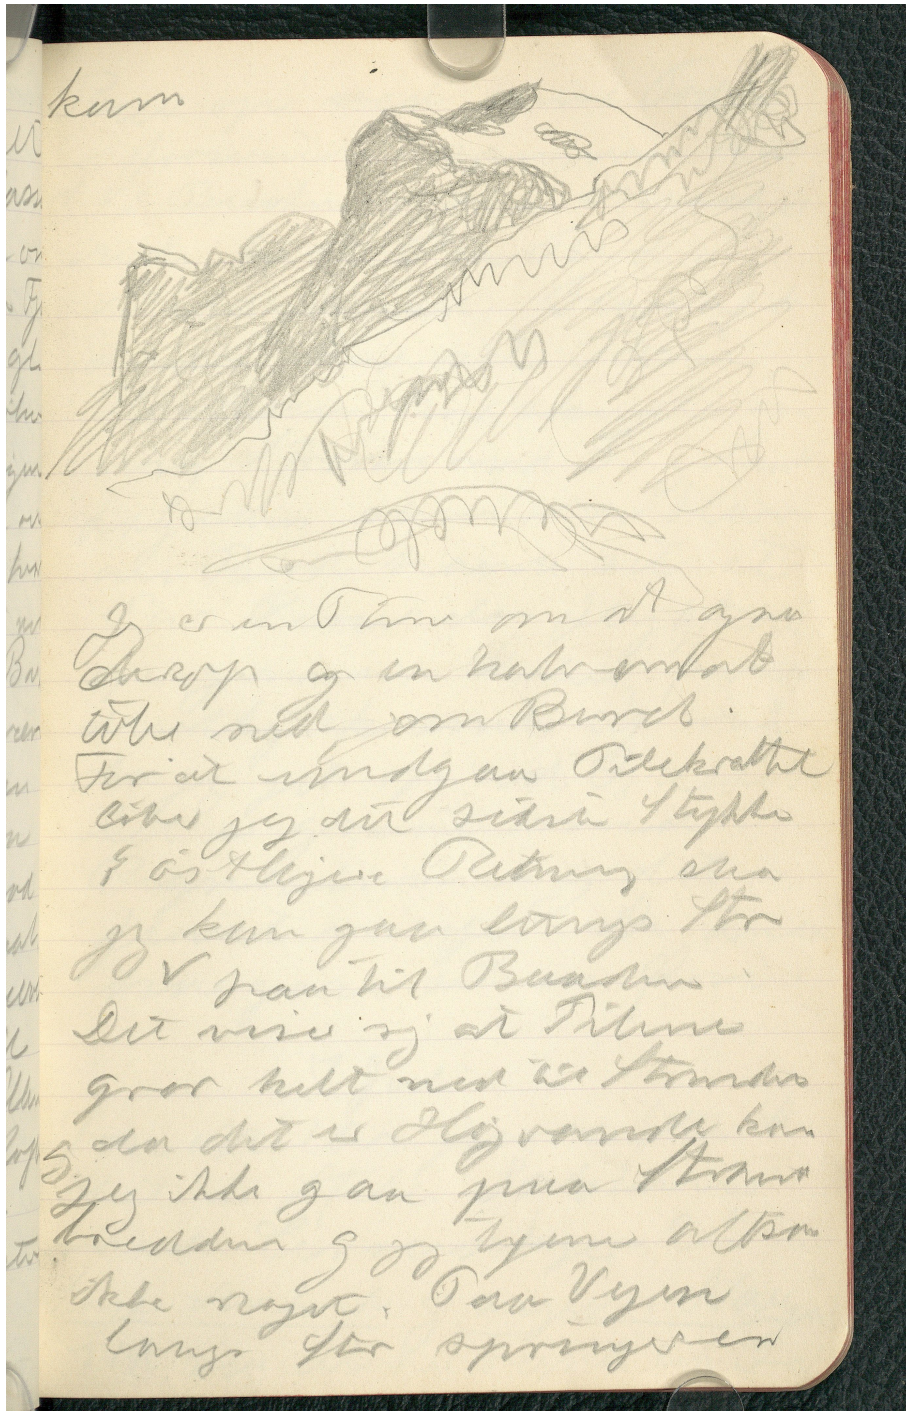 kam
Jeg er en Time om at
op og en halv om at
løbe ned om Bord.
For at undgaa Pilekrattet
løber jeg det sidste Stykke
i østligere Retning saa
jeg kan gaa langs Str
paa til Baaden
Det viser sig at Pilene
gror helt ned til Stranden
da det er Højvande kan
jeg ikke gaa paa Strand
bredden og jeg tjener altsaa
ikke noget. Paa Vejen
langs Str springer en